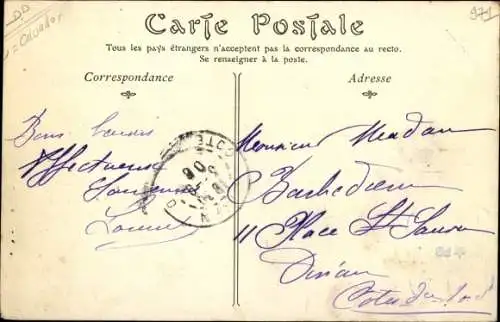 DD
= Calvados
971
Carte Postale
Tous les pays étrangers n'acceptent pas la correspondance au recto.
Se renseigner à la poste.
Correspondance
Adresse
Bons baisers
Affectueux
Louise
Monsieur Madam
Barbedienne
11 Place St Sauveur
Dinan
Cotes du Nord